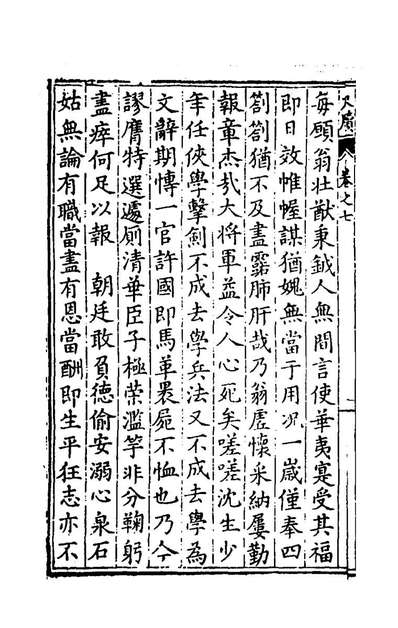 卷之七
每顧翁壯猷秉鉞人無間言使華夷寔受其福
即日效帷幄謀猶媿無當于用況一歲僅奉四
劄劄猶不及盡露肺肝哉乃翁虛懷采納屢勤
報章杰哉大將軍益令人心死矣嗟嗟沈生少
年任俠學擊劍不成去學兵法又不成去學為
文辭期博一官許國即馬革裹屍不恤也乃今
謬膺特選遽廁清華臣子極榮濫竽非分鞠躬
盡瘁何足以報 朝廷敢負德偷安溺心泉石
姑無論有職當盡有恩當酬即生平狂志亦不